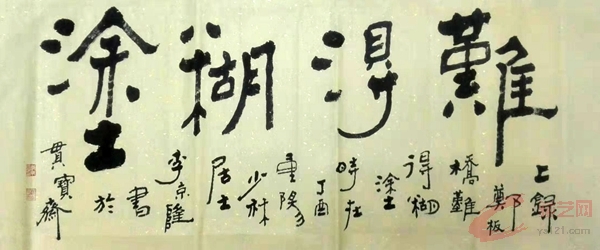 難得糊塗
上録
鄭板
橋難
得糊
塗
時在
丁酉
重陽
少林
居士
李京隆
書
於
貫寶齋